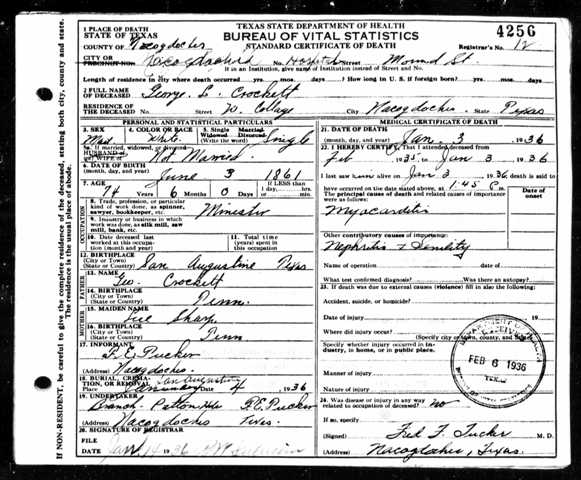 TEXAS STATE DEPARTMENT OF HEALTH
BUREAU OF VITAL STATISTICS
STANDARD CERTIFICATE OF DEATH
4256
Registrar's No. 12
1 PLACE OF DEATH
STATE OF TEXAS
COUNTY OF Nacogdoches
CITY OR PRECINCT Nacogdoches No. Hospital Mound St.
If in an Institution, give name of Institution instead of Street and No.
Length of residence in city where death occurred yrs. mos. days. ? How long in U. S. if foreign born? yrs. mos. days.
2 FULL NAME OF DECEASED George L. Crockett
RESIDENCE OF THE DECEASED Street No. W. College City Nacogdoches State Texas
PERSONAL AND STATISTICAL PARTICULARS
3. SEX Male
4. COLOR OR RACE White
5. Single Married Widowed Divorced (Write the word) Single
5a. If married, widowed, or divorced HUSBAND of (or) WIFE of Not Married
6. DATE OF BIRTH (month, day, and year) June 3 1861
7. AGE 74 Years 6 Months 0 Days If LESS than 1 day, hrs. or min.
8. Trade, profession, or particular kind of work done, as spinner, sawyer, bookkeeper, etc. Minister
9. Industry or business in which work was done, as silk mill, saw mill, bank, etc.
10. Date deceased last worked at this occupation (month and year)
11. Total time (years) spent in this occupation
12. BIRTHPLACE (City or Town) (State or Country) San Augustine Texas
FATHER
13. NAME Geo. Crockett
14. BIRTHPLACE (City or Town) State or Country) Tenn.
MOTHER
15. MAIDEN NAME Sharp
16. BIRTHPLACE (City or Town) (State or Country) Tenn
17. INFORMANT F. E. Tucker
(Address) Nacogdoches
18. BURIAL, CREMATION, OR REMOVAL San Augustine
Place Date 4 1936
19. UNDERTAKER Branch-Patton F. E. Tucker
(Address) Nacogdoches Texas
20. SIGNATURE OF REGISTRAR
FILE DATE Jan 1936
MEDICAL CERTIFICATE OF DEATH
21. DATE OF DEATH (month, day, and year) Jan 3 1936
22. I HEREBY CERTIFY, That I attended deceased from
Feb 1935 to Jan 3 1936
I last saw him alive on Jan 3 1936, death is said to have occurred on the date stated above, at 1:45 P.m.
The principal cause of death and related causes of importance were as follows:
Date of onset
Myocarditis
Other contributory causes of importance:
Nephritis & Senility
Name of operation Date of
What test confirmed diagnosis? Was there an autopsy?
23. If death was due to external causes (violence) fill in also the following:
Accident, suicide, or homicide?
Date of injury 19
Where did injury occur?
(Specify city or town, county, and state)
Specify whether injury occurred in industry, in home, or in public place.
Manner of injury
Nature of injury
24. Was disease or injury in any way related to occupation of deceased? no
If so, specify
(Signed) Fred T. Tucker M. D.
Nacogdoches, Texas.
FEB 6 1936
TEXAS